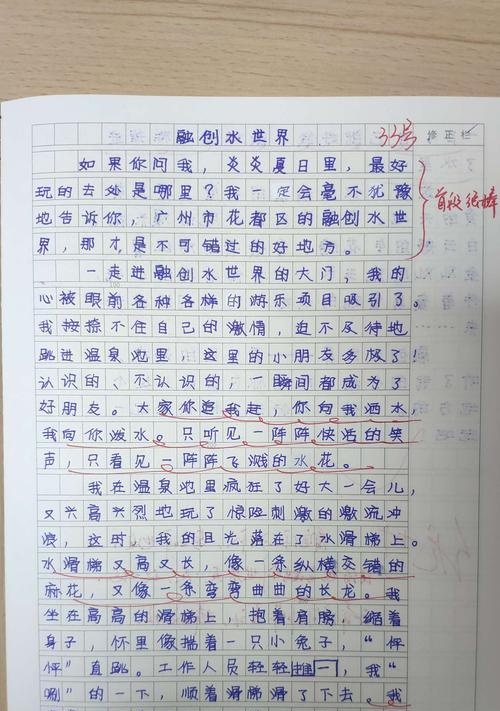 融创水世界 33号 修正栏
如果你问我，炎炎夏日里，最好
玩的去处是哪里？我一定会毫不犹豫
地告诉你，广州市花都区的融创水世
界，那才是不可错过的好地方。
首段很棒
一走进融创水世界的大门，我的
心被眼前各种各样的游乐项目吸引了。
我按捺不住自己的激情，迫不及待地
跳进温泉池里，这里的小朋友多极了！
认识的、不认识的，一瞬间都成为了
好朋友。大家你追我赶，你向我洒水，
我向你泼水。只听见一阵阵快活的笑
声，只看见一阵阵飞溅的水花。
我在温泉池里疯狂了好大一会儿，
又兴高兴烈地玩了惊险刺激的激流冲
浪，这时，我的目光落在了水滑梯上。
水滑梯又高又长，像一条纵横交错的
麻花，又像一条弯弯曲曲的长龙。我
坐在高高的滑梯上，抱着肩膀，缩着
身子，怀里像揣着一只小兔子，“怦
怦”直跳。工作人员轻轻一，我“
唰”的一下，顺着滑梯滑了下去。我